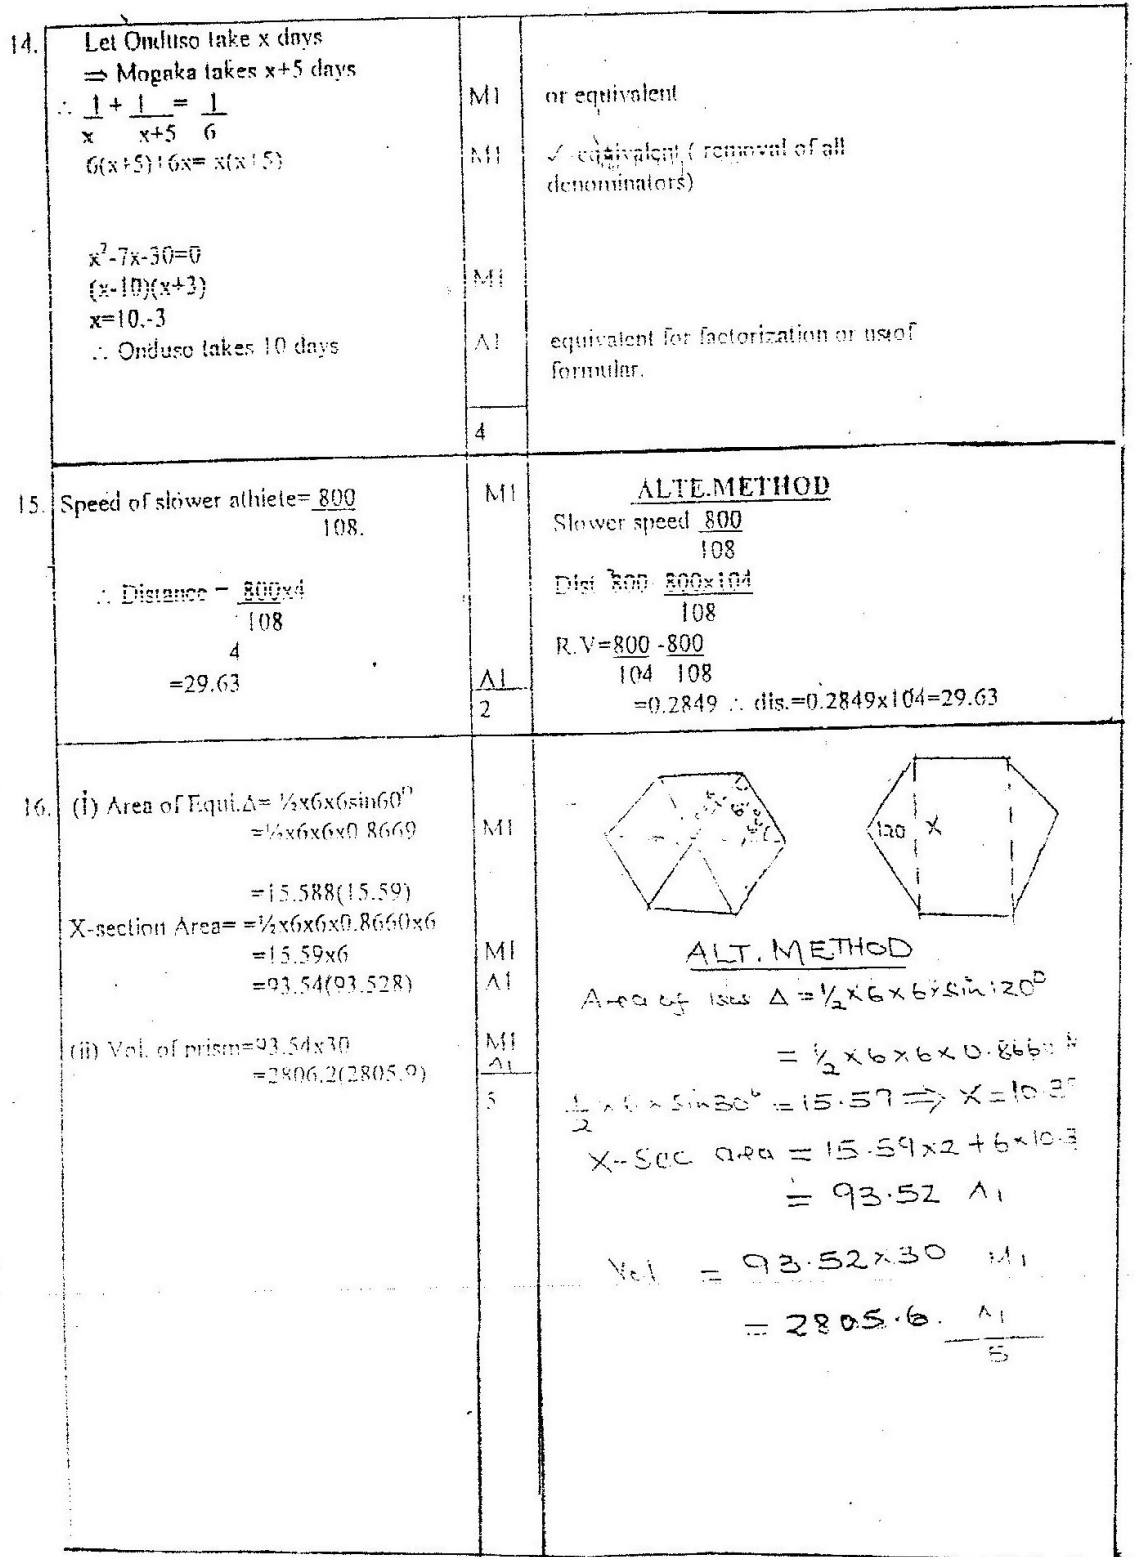 14.
Let Onduso take x days
⇒ Mogaka takes x+5 days
∴ 1/x + 1/x+5 = 1/6
6(x+5)+6x= x(x+5)
x²-7x-30=0
(x-10)(x+3)
x=10,-3
∴ Onduso takes 10 days
M1
M1
M1
A1
4
or equivalent
✓ equivalent ( removal of all
denominators)
equivalent for factorization or use of
formular.
15.
Speed of slower athlete= 800/108.
∴ Distance = 800x4/108
4
=29.63
M1
A1
2
ALTE.METHOD
Slower speed 800/108
Dist 800 800x104/108
R.V=800/104 -800/108
=0.2849 ∴ dis.=0.2849x104=29.63
16.
(i) Area of Equi.Δ= ½x6x6sin60⁰
=½x6x6x0.8669
=15.588(15.59)
X-section Area= =½x6x6x0.8660x6
=15.59x6
=93.54(93.528)
(ii) Vol. of prism=93.54x30
=2806.2(2805.9)
M1
M1
A1
M1
A1
5
120 X
ALT. METHOD
Area of Δ = ½ x 6 x 6 x sin 120⁰
= ½ x 6 x 6 x 0.866
½ x 6 x sin30⁰ = 15.59 ⇒ X = 10.3
X-Sec area = 15.59x2 + 6x10.3
= 93.52 A1
Vol = 93.52x30 M1
= 2805.6. A1
5